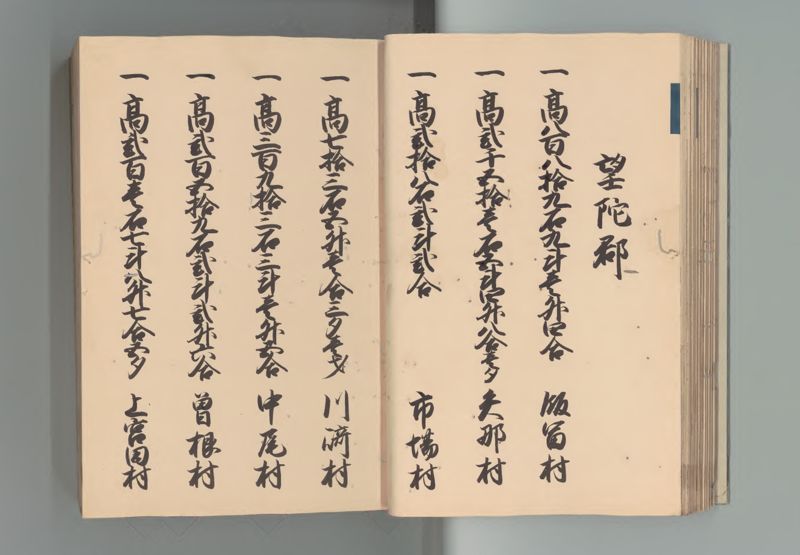 望陀郡
一高八百八拾九石九斗壱升四合 飯冨村
一高弐千五拾壱石六斗四升八合壱夕 久那村
一高弐拾八石弐斗弐合 市場村
一高七拾三石五升壱合三夕壱才 川崎村
一高三百九拾三石三斗壱升五合 中尾村
一高弐百五拾九石弐斗弐升六合 曽根村
一高弐百壱石七斗八升七合五夕 上宮田村